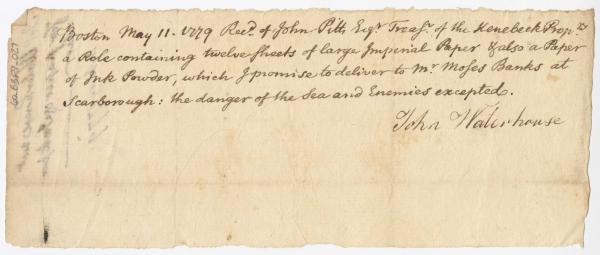 Boston May 11. 1779 Recd. of John Pitts Esqr. Treasr. of the Kenebeck Propry
a Role containing twelve sheets of large Imperial Paper & also a Paper
of Ink Powder, which I promise to deliver to Mr. Moses Banks at
Scarborough: the danger of the Sea and Enemies excepted.
John Waterhouse